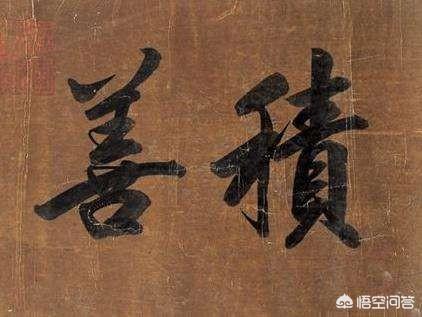 積善
悟空问答